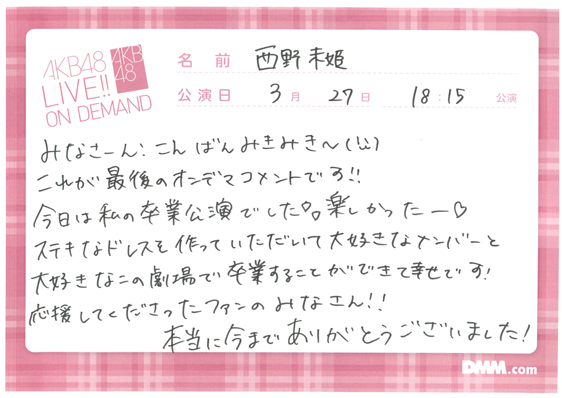 AKB48
LIVE!!
ON DEMAND
AKB
48
名前 西野未姫
公演日 3月 27日 18:15 公演
みなさーん！こんばんみきみき〜(!;;)
これが最後のオンデマコメントです!!
今日は私の卒業公演でした♡。楽しかったー♡
ステキなドレスを作っていただいて大好きなメンバーと
大好きなこの劇場で卒業することができて幸せです！
応援してくださったファンのみなさん!!
本当に今までありがとうございました！
DMM.com